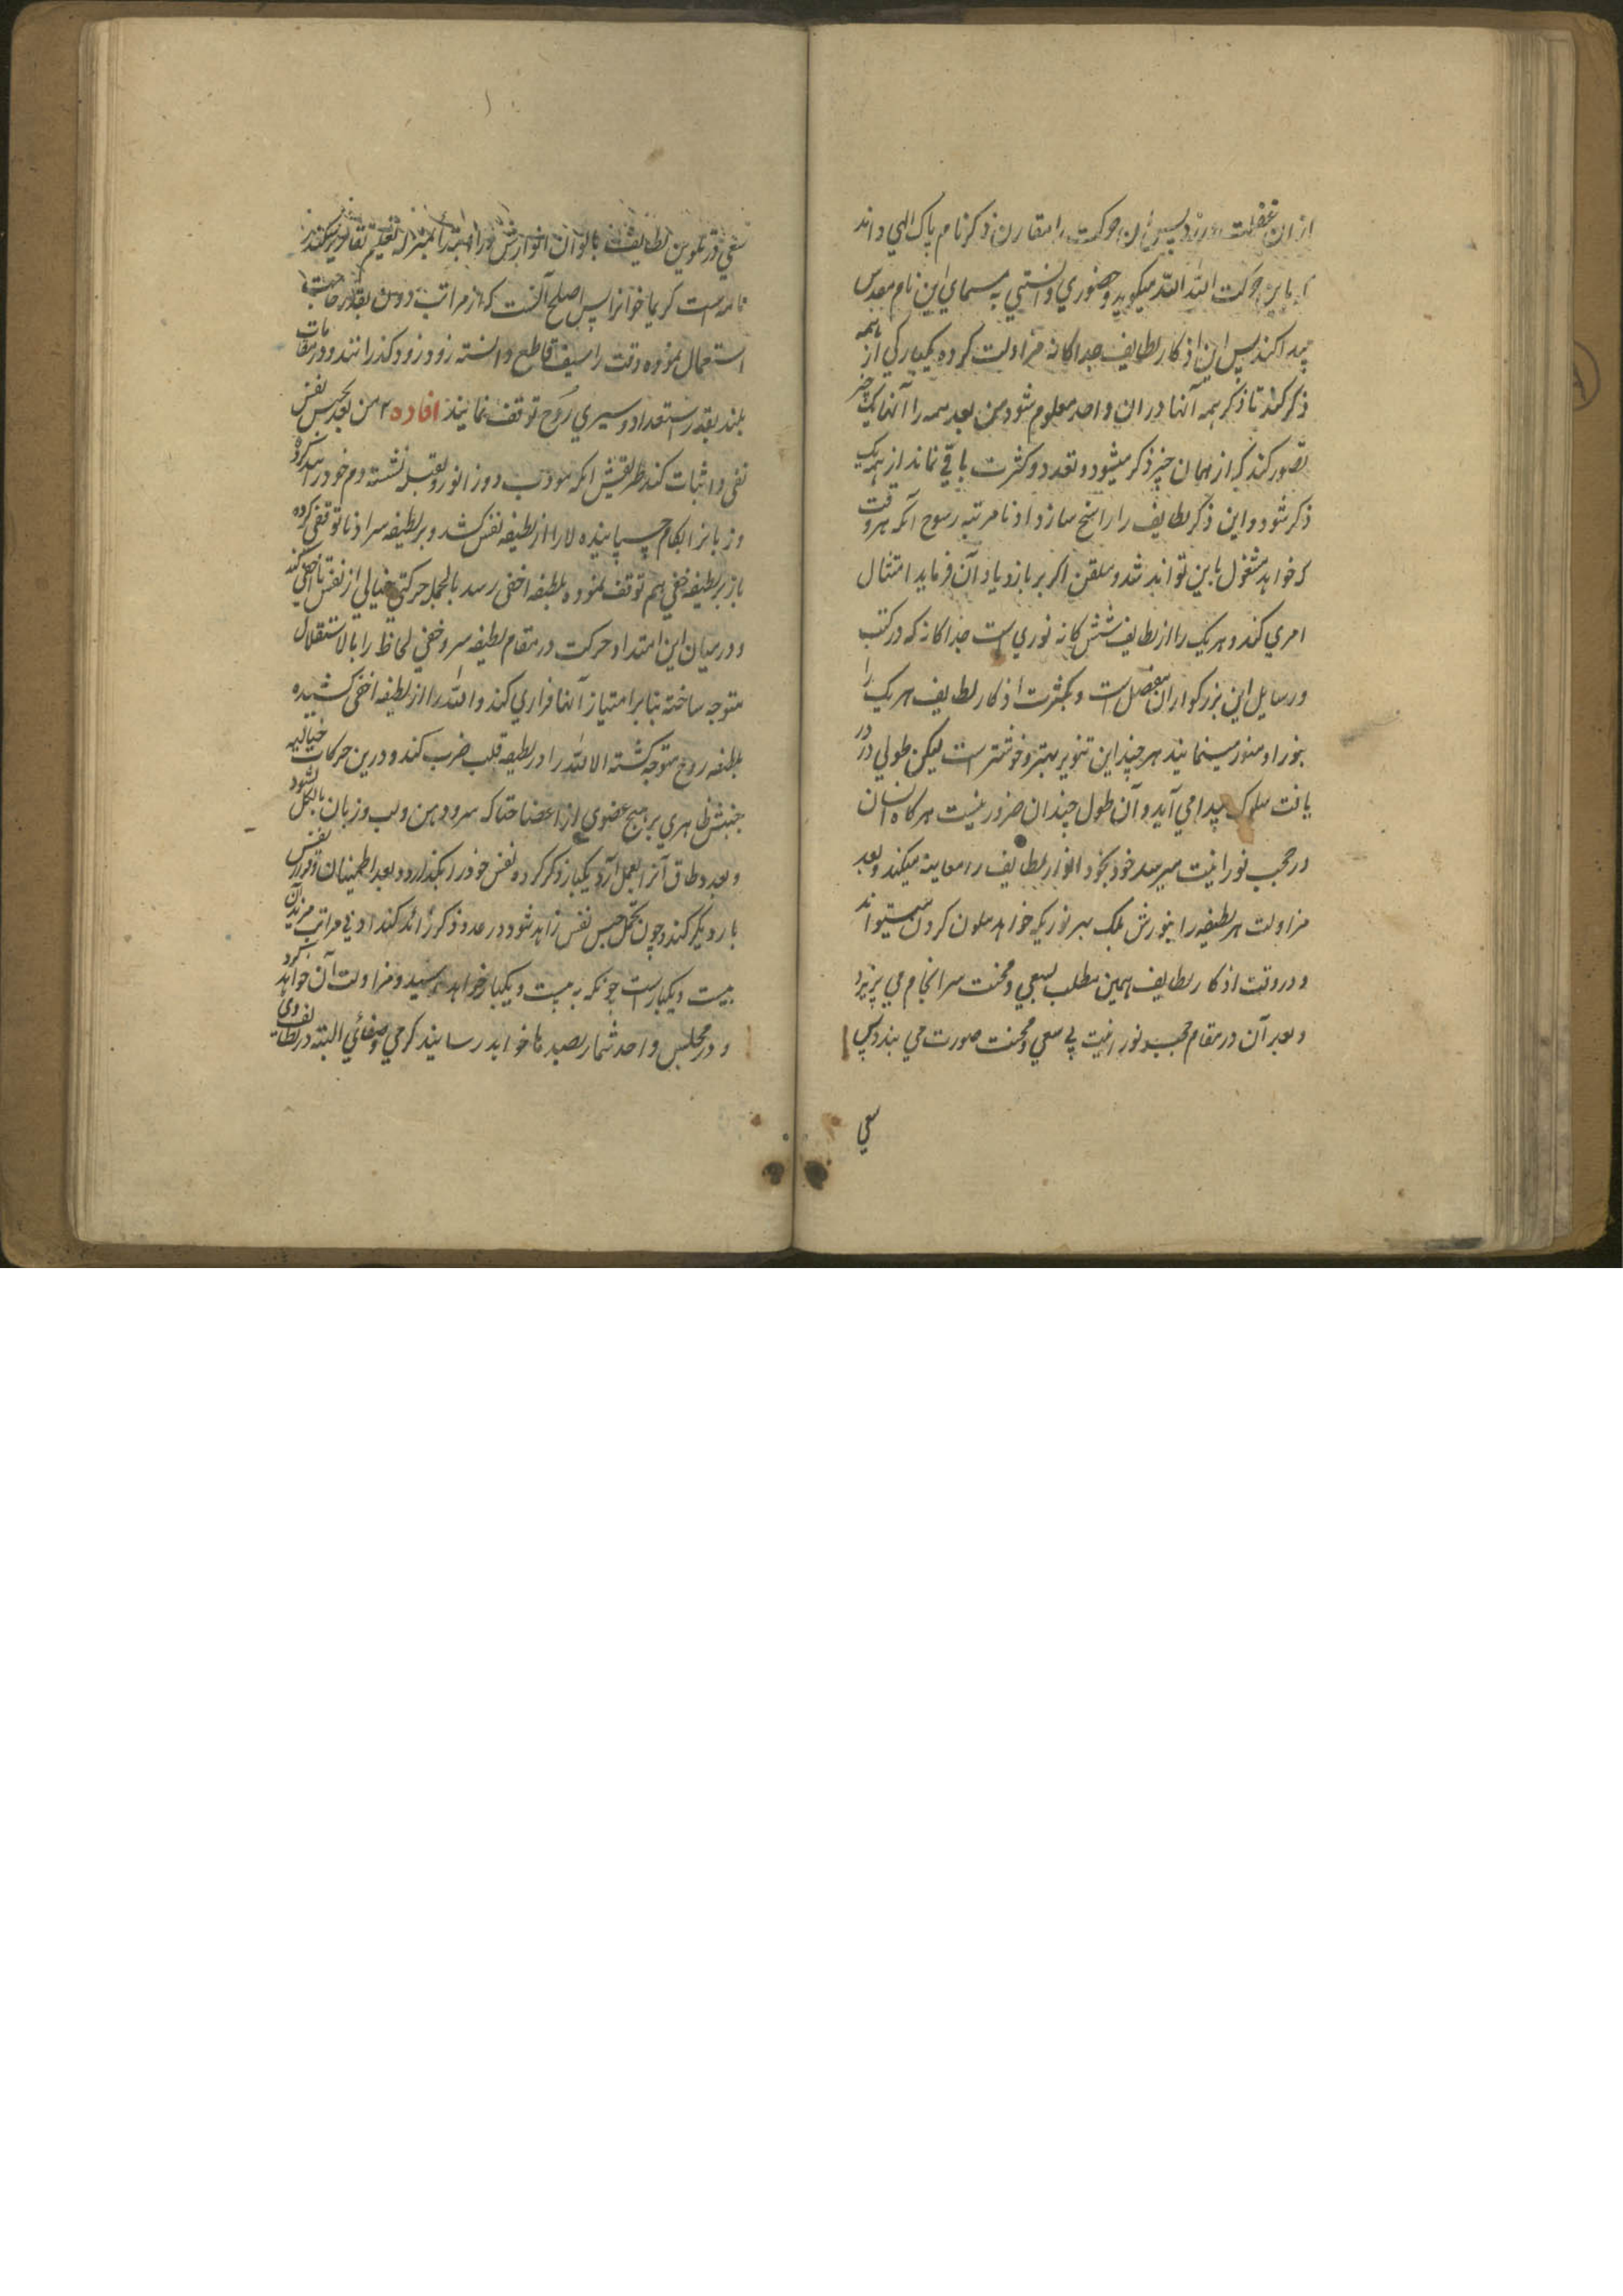 ازان غفلت ورزد پس آن حرکت را مقارن ذکر نام پاک الهی داند
که باین حرکت الله الله میگوید و حضوری و انسی به مسمای این نام مقدس
پیدا کند پس این اذکار لطایف جداگانه مزاولت کرده یکبارگی از همه
ذکر کند تا ذکر همه آنها در ان واحد معلوم شود من بعد همه را آنها یک چیز
تصور کند که از همان چیز ذکر میشود و تعدد و کثرت باقی نماند از همه یک
ذکر شود و این ذکر لطایف را راسخ سازد ادنا مرتبه رسوخ آنکه هر وقت
که خواهد مشغول باین تواند شد و ملقن اگر بر بازدیاد آن فرماید امتثال
امری کند و هر یک را از لطایف ششگانه نوری است جداگانه که در کتب
و رسایل این بزرگواران مفصل است و بکثرت اذکار لطایف هر یک را
بنور او منور مینمایند هر چند این تنویر بهتر و خوشتر است لیکن طولی در
یافت سلوک پیدا می آید و آن طول چندان ضرور نیست هرگاه انسان
در حجب نورانیت میرسد خود بخود انوار لطایف را معاینه میکند و بعد
مزاولت هر لطیفه را بنورش بلک بهر نوریکه خواهد ملون کردن میتواند
و در وقت اذکار لطایف همین مطلب بسعی و محنت سرانجام می پزیرد
و بعد آن در مقام حجب نورانیت بی سعی و محنت صورت می بندد پس
سعی
سعی در تلوین لطایف بالوان انوارش مر امت را بمنزله تعلیم تقاریر میکند
نامه است کریما خوانرا پس اصلح آنست که از مراتب دون بقدر حاجت
استعمال نموده وقت را سیف قاطع دانسته زود زود گذرانند و در مقامات
بلند بقدر استعداد و سیری روح توقف نمایند افاده ۲ من بعد بحبس نفس
نفی و اثبات کند طریقش آنکه مودب دوزانو رو بقبله نشسته دم خود را بند کرده
و زبانرا بکام چسپانیده لا را از لطیفه نفس کشد و بر لطیفه سر ادنا توقفی کرده
باز بر لطیفه خفی هم توقف نموده بلطیفه اخفی رسد بالجمله حرکتی خیالی از نفس تا اخفی کند
و در میان این امتداد حرکت در مقام لطیفه سر و خفی لحاظ را بالاستقلال
متوجه ساخته بنا بر امتیاز آنها قراری کند و الله را از لطیفه اخفی کشیده
بلطیفه روح متوجه گشته الا الله را در لطیفه قلب ضرب کند و درین حرکات خیالیه
جنبش ظاهری بر هیچ عضوی از اعضا حتا که سر و دهن و لب و زبان بالکل نشود
و بعدد طاق آنرا بعمل آرد یکبار ذکر کرده نفس خود را بگذارد و بعد اطمینان و قرار نفس
بار دیگر کند و چون تحمل حبس نفس زاید شود در عدد ذکر زائد کند ادنی مراتب مزید آن
بیست و یکبار است چونکه به بیست و یکبار خواهد رسید و مزاولت آن خواهد کرد
و در مجلس واحد شمار بصد ها خواهد رسانید گرمی و صفائی البته در لطایف وی